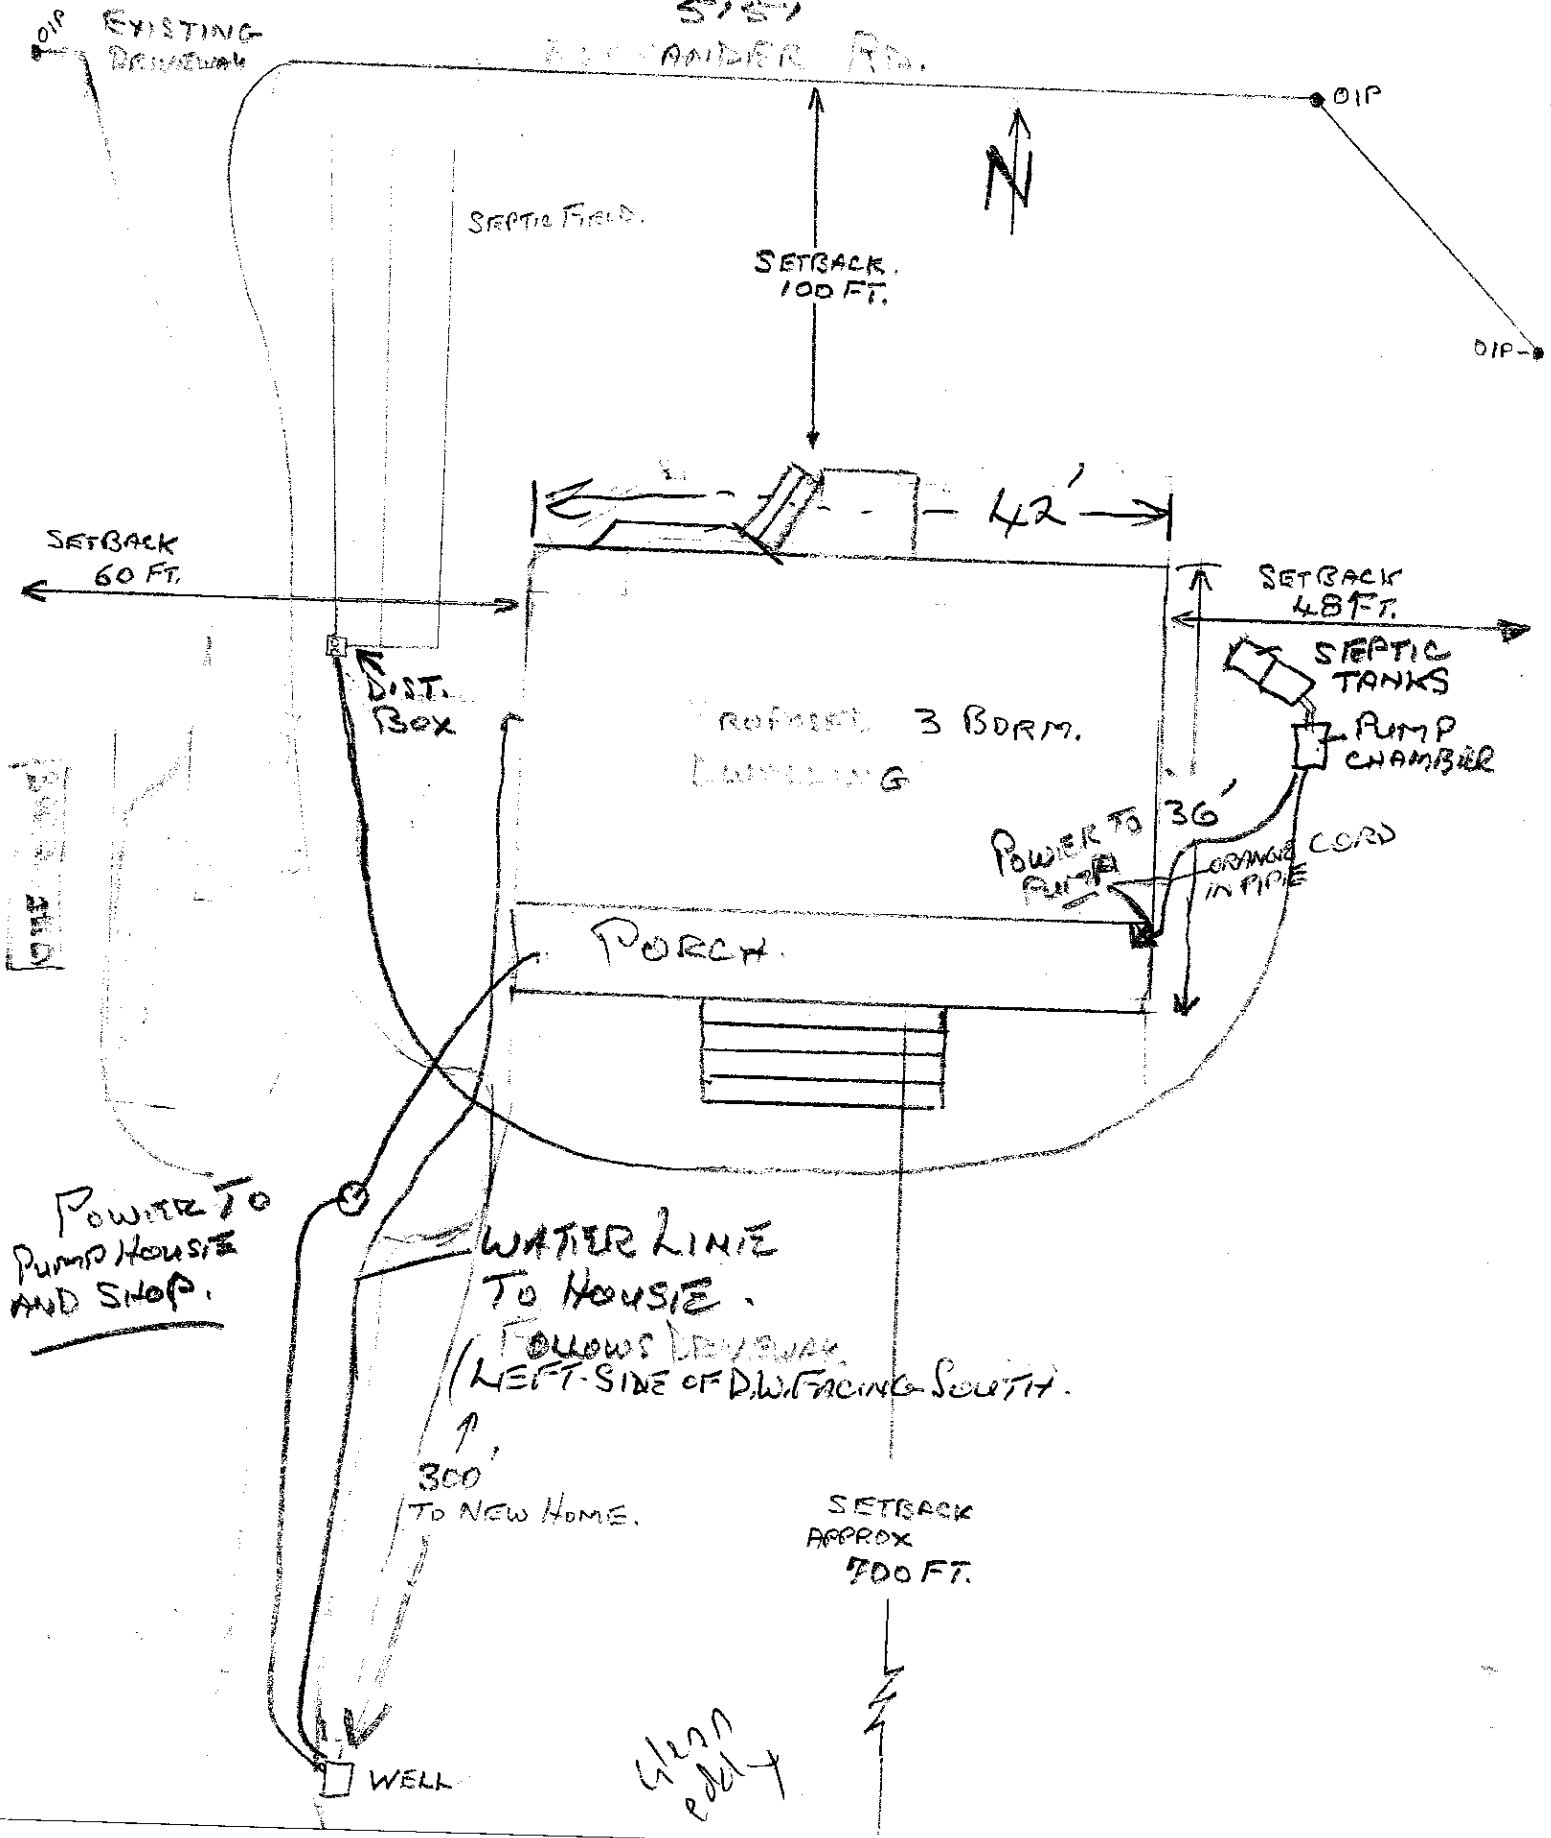 OIP
EXISTING
DRIVEWAY
5151
RD.
OIP
N
SEPTIC FIELD.
SETBACK.
100 FT.
OIP
42'
SETBACK
60 FT.
SETBACK
48 FT.
SEPTIC
TANKS
DIST.
BOX
3 BDRM.
DWELLING
PUMP
CHAMBER
36'
POWER TO
PUMP
ORANGE CORD
IN PIPE
PORCH.
POWER TO
PUMP HOUSE
AND SHOP.
WATER LINE
TO HOUSE.
FOLLOWS DRIVEWAY
(LEFT-SIDE OF D.W. FACING SOUTH.
300'
TO NEW HOME.
SETBACK
APPROX
700 FT.
WELL
Glenn
eddy